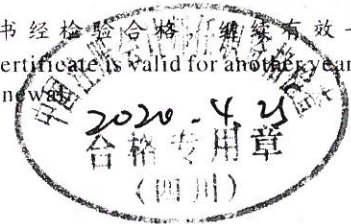 书经检验合格，继续有效一
ertificate is valid for another year
newal.
2020.4.25
合格专用章
（四川）